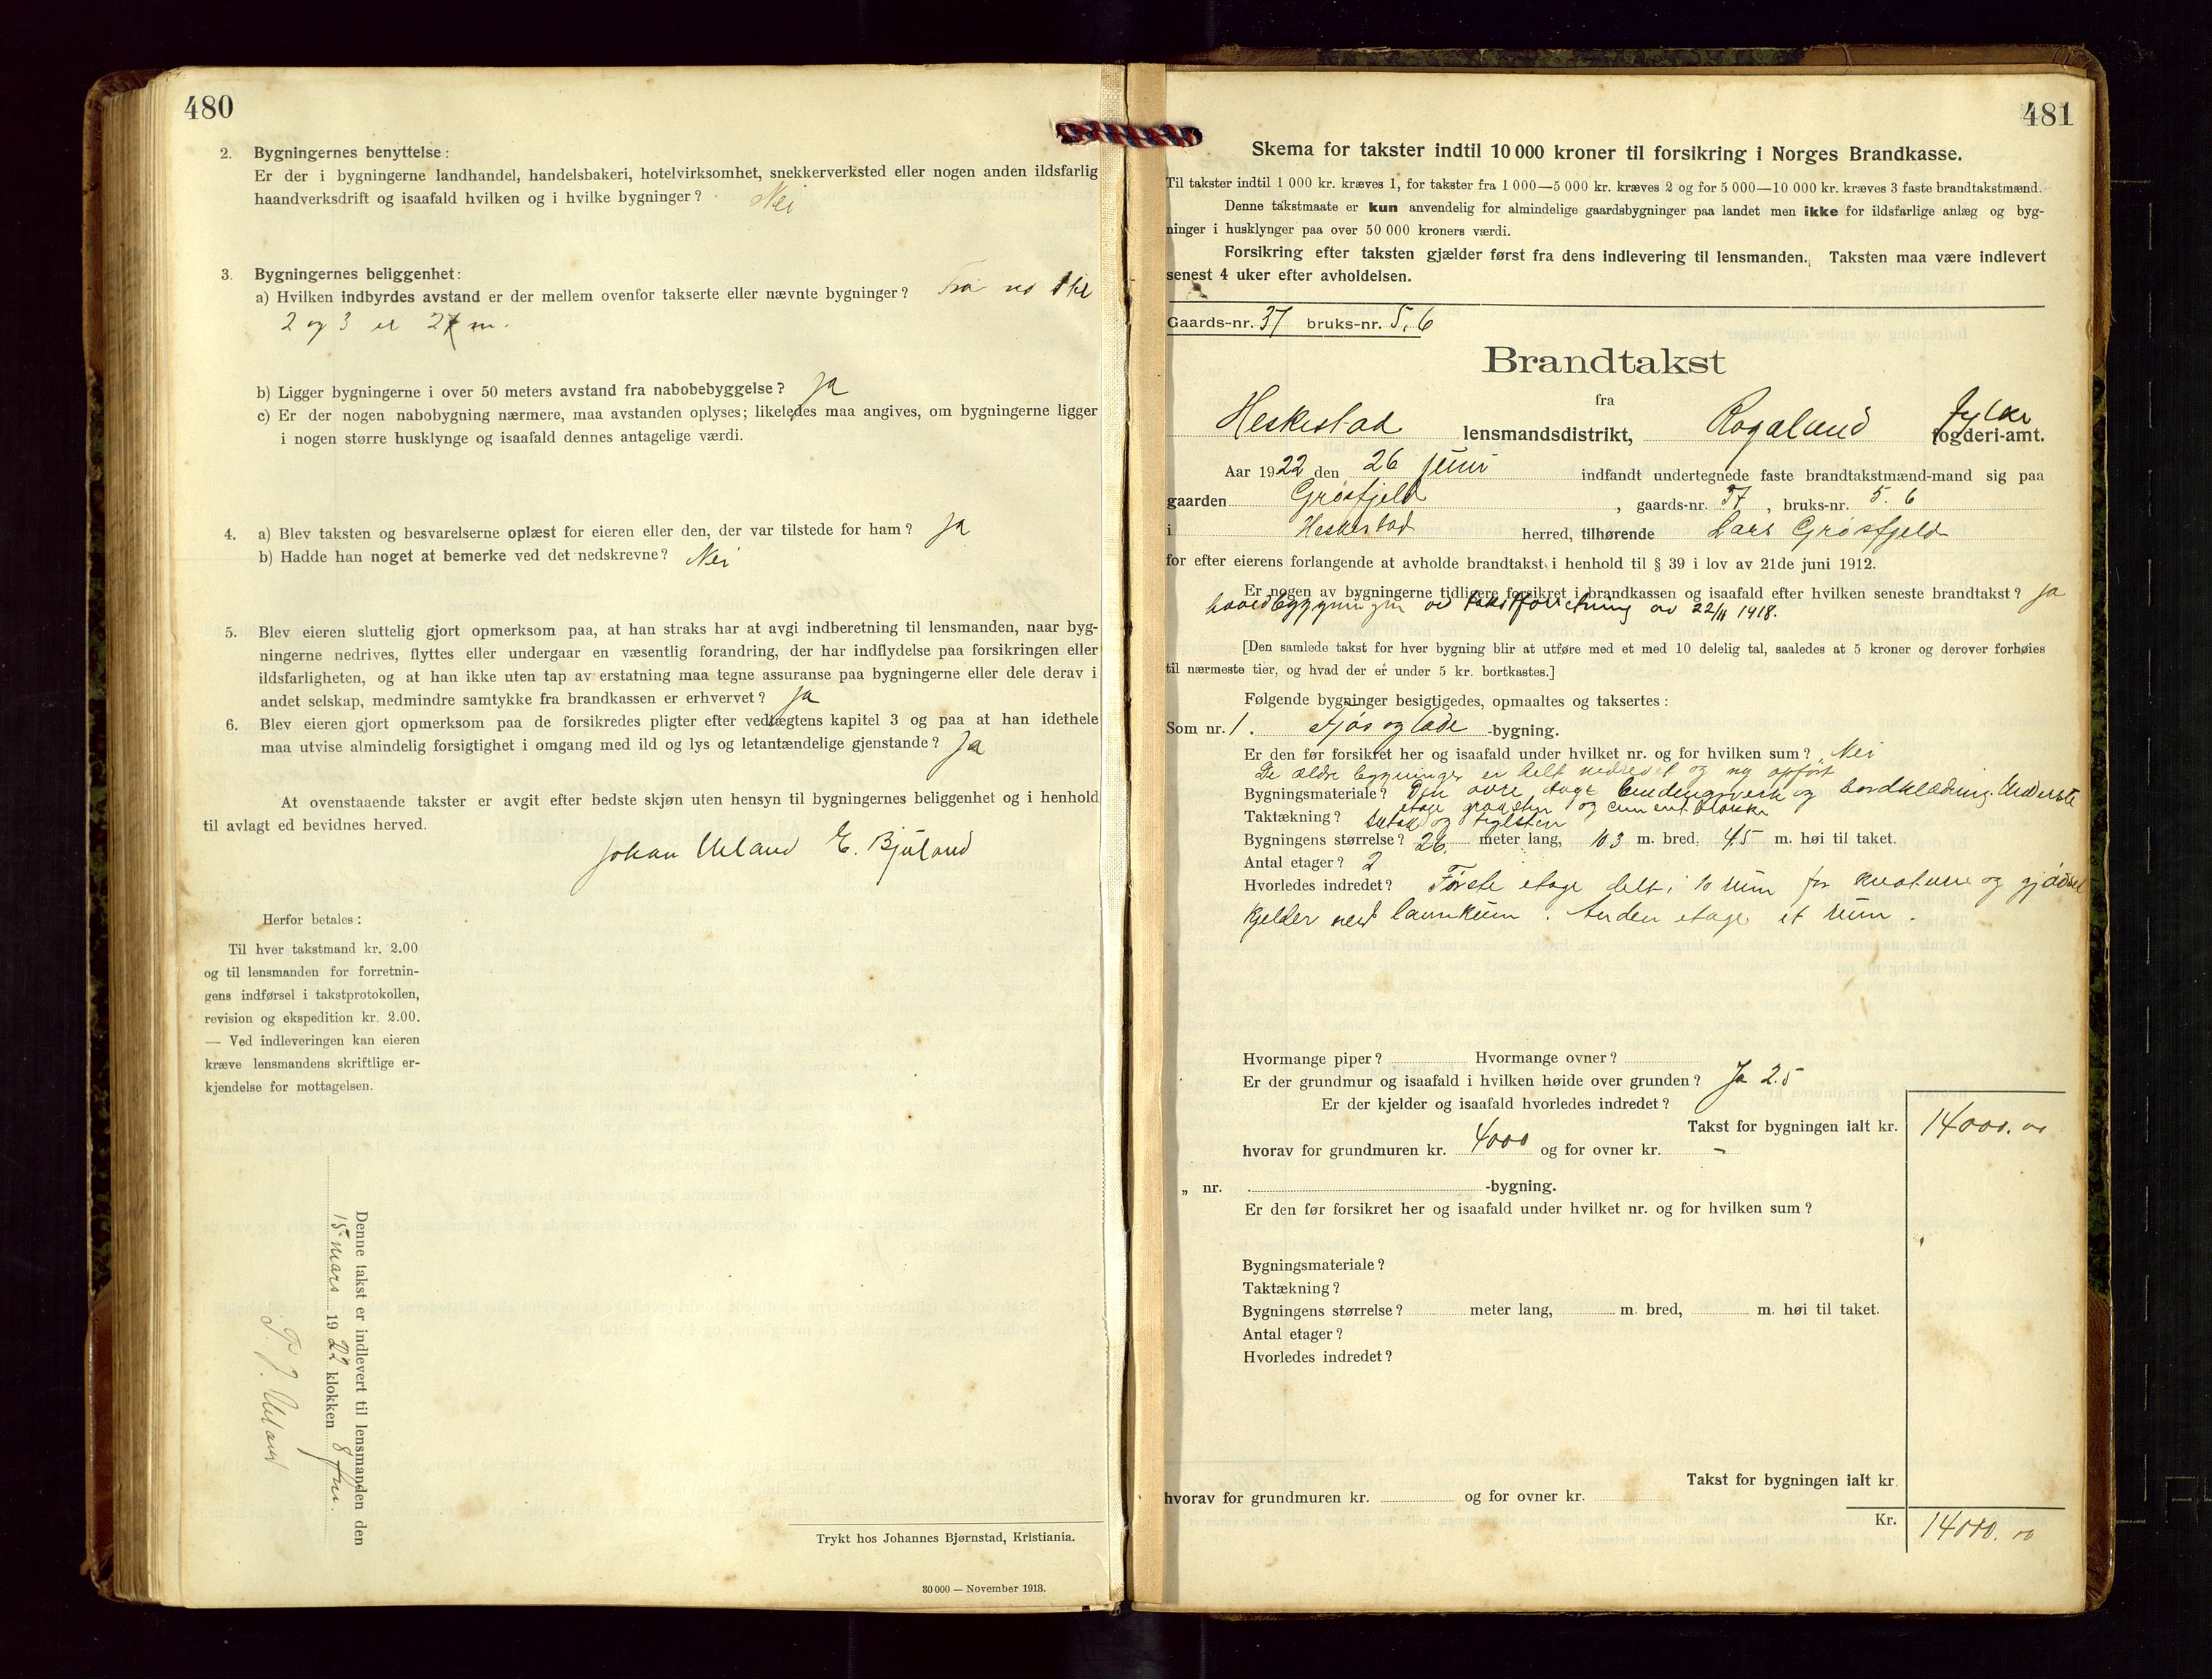 480
2. Bygningernes benyttelse:
Er der i bygningerne landhandel, handelsbakeri, hotelvirksomhet, snekkerverksted eller nogen anden ildsfarlig
haandverksdrift og isaafald hvilken og i hvilke bygninger? Nei
3. Bygningernes beliggenhet:
a) Hvilken indbyrdes avstand er der mellem ovenfor takserte eller nævnte bygninger? Fra no 1 til
2 og 3 er 27 m.
b) Ligger bygningerne i over 50 meters avstand fra nabobebyggelse? Ja
c) Er der nogen nabobygning nærmere, maa avstanden oplyses; likeledes maa angives, om bygningerne ligger
i nogen større husklynge og isaafald dennes antagelige værdi.
4. a) Blev taksten og besvarelserne oplæst for eieren eller den, der var tilstede for ham? Ja
b) Hadde han noget at bemerke ved det nedskrevne? Nei
5. Blev eieren sluttelig gjort opmerksom paa, at han straks har at avgi indberetning til lensmanden, naar byg-
ningerne nedrives, flyttes eller undergaar en væsentlig forandring, der har indflydelse paa forsikringen eller
ildsfarligheten, og at han ikke uten tap av erstatning maa tegne assuranse paa bygningerne eller dele derav i
andet selskap, medmindre samtykke fra brandkassen er erhvervet? Ja
6. Blev eieren gjort opmerksom paa de forsikredes pligter efter vedtægtens kapitel 3 og paa at han idethele
maa utvise almindelig forsigtighet i omgang med ild og lys og letantændelige gjenstande? Ja
At ovenstaaende takster er avgit efter bedste skjøn uten hensyn til bygningernes beliggenhet og i henhold
til avlagt ed bevidnes herved.
Johan Ueland E. Bjuland
Herfor betales:
Til hver takstmand kr. 2.00
og til lensmanden for forretnin-
gens indførsel i takstprotokollen,
revision og ekspedition kr. 2.00.
— Ved indleveringen kan eieren
kræve lensmandens skriftlige er-
kjendelse for mottagelsen.
Denne takst er indlevert til lensmanden den
15 mars 1922 klokken 8 fm.
Ueland
Trykt hos Johannes Bjørnstad, Kristiania.
30 000 — November 1913.
481
Skema for takster indtil 10 000 kroner til forsikring i Norges Brandkasse.
Til takster indtil 1 000 kr. kræves 1, for takster fra 1 000—5 000 kr. kræves 2 og for 5 000—10 000 kr. kræves 3 faste brandtakstmænd.
Denne takstmaate er kun anvendelig for almindelige gaardsbygninger paa landet men ikke for ildsfarlige anlæg og byg-
ninger i husklynger paa over 50 000 kroners værdi.
Forsikring efter taksten gjælder først fra dens indlevering til lensmanden. Taksten maa være indlevert
senest 4 uker efter avholdelsen.
Gaards-nr. 37 bruks-nr. 5, 6
Brandtakst
fra
Heskestad lensmandsdistrikt, Rogaland fylke fogderi-amt.
Aar 1922 den 26 juni indfandt undertegnede faste brandtakstmænd-mand sig paa
gaarden Grøsfjeld, gaards-nr. 37, bruks-nr. 5. 6
i Heskestad herred, tilhørende Lars Grøsfjeld
for efter eierens forlangende at avholde brandtakst i henhold til § 39 i lov av 21de juni 1912.
Er nogen av bygningerne tidligere forsikret i brandkassen og isaafald efter hvilken seneste brandtakst? Ja
hovedbygningen ved takstforretning av 22/11 1918.
[Den samlede takst for hver bygning blir at utføre med et med 10 delelig tal, saaledes at 5 kroner og derover forhøies
til nærmeste tier, og hvad der er under 5 kr. bortkastes.]
Følgende bygninger besigtigedes, opmaaltes og taksertes:
Som nr. 1. Fjøs og lade -bygning.
Er den før forsikret her og isaafald under hvilket nr. og for hvilken sum? Nei
De ældre bygninger er helt nedrevet og ny opført
Bygningsmateriale? Den øvre etage bindingsverk og bordklædning. Underste
etage graasten og cementblokke
Taktækning? og teglsten
Bygningens størrelse? 26 meter lang, 10.3 m. bred, 4.5 m. høi til taket.
Antal etager? 2
Hvorledes indredet? Første etage delt i 10 rum for kreature og gjødsel
kjelder med lannkum. Anden etage et rum.
Hvormange piper? Hvormange ovner?
Er der grundmur og isaafald i hvilken høide over grunden? Ja 2.5
Er der kjelder og isaafald hvorledes indredet?
Takst for bygningen ialt kr. 14000.00
hvorav for grundmuren kr. 4000 og for ovner kr. -
„ nr. -bygning.
Er den før forsikret her og isaafald under hvilket nr. og for hvilken sum?
Bygningsmateriale?
Taktækning?
Bygningens størrelse? meter lang, m. bred, m. høi til taket.
Antal etager?
Hvorledes indredet?
Takst for bygningen ialt kr.
hvorav for grundmuren kr. og for ovner kr.
Kr. 14000.00